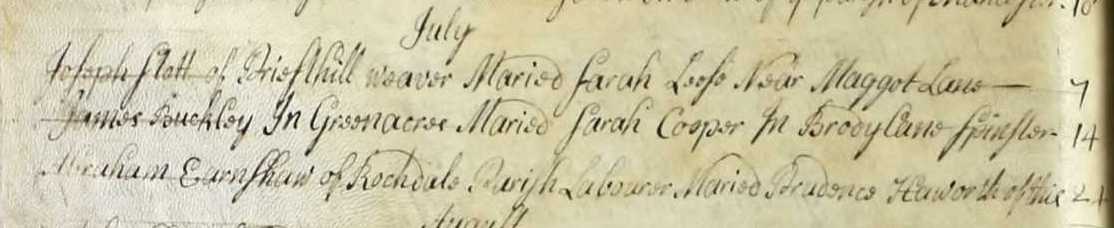 July
Joseph Slott of Priesthill weaver Maried Sarah Leese Near Maggot Lane — 7
James Buckley In Greenacres Maried Sarah Cooper In Brodylane Spinster 14
Abraham Earnshaw of Rochdale Parish Labourer Maried Prudence Haworth of this 24
August